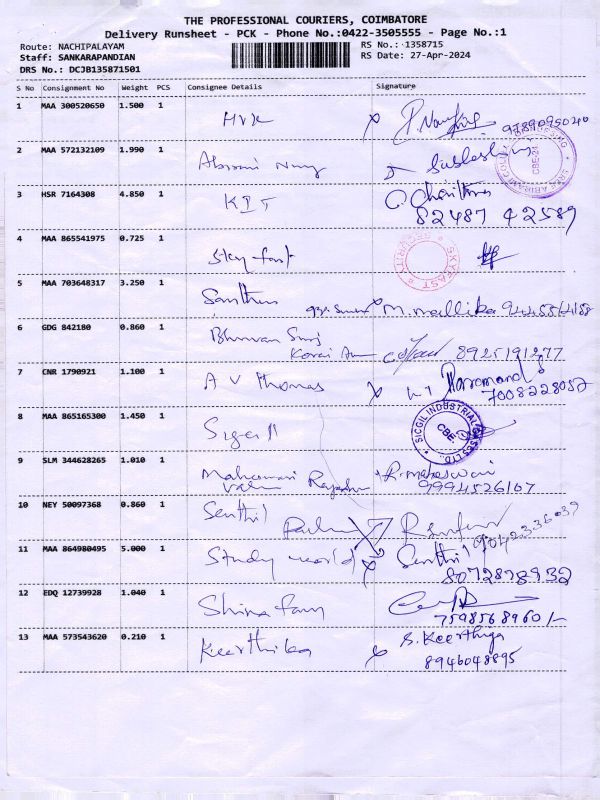 THE PROFESSIONAL COURIERS, COIMBATORE
Delivery Runsheet - PCK - Phone No.:0422-3505555 - Page No.:1
Route: NACHIPALAYAM RS No.: 1358715
Staff: SANKARAPANDIAN RS Date: 27-Apr-2024
DRS No.: DCJB135871501
S No Consignment No Weight PCS Consignee Details Signature
1 MAA 300520650 1.500 1 9789095040
2 MAA 572132109 1.990 1
3 HSR 7164308 4.850 1 KIT
82487 42589
4 MAA 865541975 0.725 1 Sky fast
SKYFAST
5 MAA 703648317 3.250 1 M. mallika
6 GDG 842180 0.860 1
8925191277
7 CNR 1790921 1.100 1 A V Thomas
7008228057
8 MAA 865165300 1.450 1
SICGIL INDUSTRIAL GASES LTD.
CBE
9 SLM 344628265 1.010 1 R. maheswari
9994526167
10 NEY 50097368 0.860 1 Senthil
9042336039
11 MAA 864980495 5.000 1 Study world Senthil
8072878932
12 EDQ 12739928 1.040 1
7598568960/-
13 MAA 573543620 0.210 1 Keerthika S. Keerthiga
8946048895